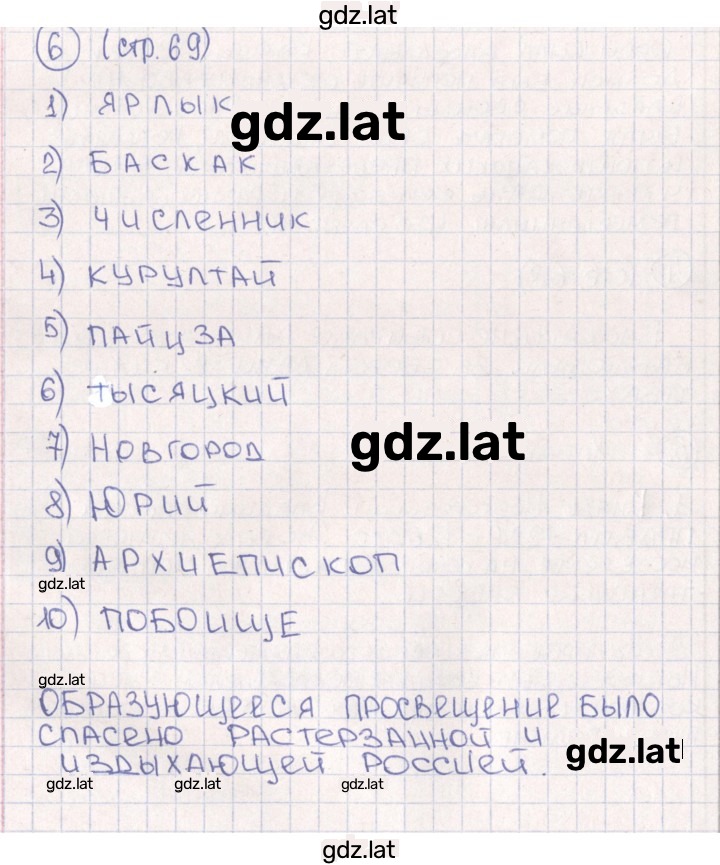 gdz.lat
6 (стр. 69)
1) ЯРЛЫК
gdz.lat
2) БАСКАК
3) ЧИСЛЕННИК
4) КУРУЛТАЙ
5) ПАЙЦЗА
6) ТЫСЯЦКИЙ
gdz.lat
7) НОВГОРОД
8) ЮРИЙ
9) АРХИЕПИСКОП
gdz.lat
10) ПОБОИЩЕ
gdz.lat
ОБРАЗУЮЩЕЕСЯ ПРОСВЕЩЕНИЕ БЫЛО
СПАСЕНО РАСТЕРЗАННОЙ И
gdz.lat
ИЗДЫХАЮЩЕЙ РОССИЕЙ.
gdz.lat gdz.lat gdz.lat
gdz.lat